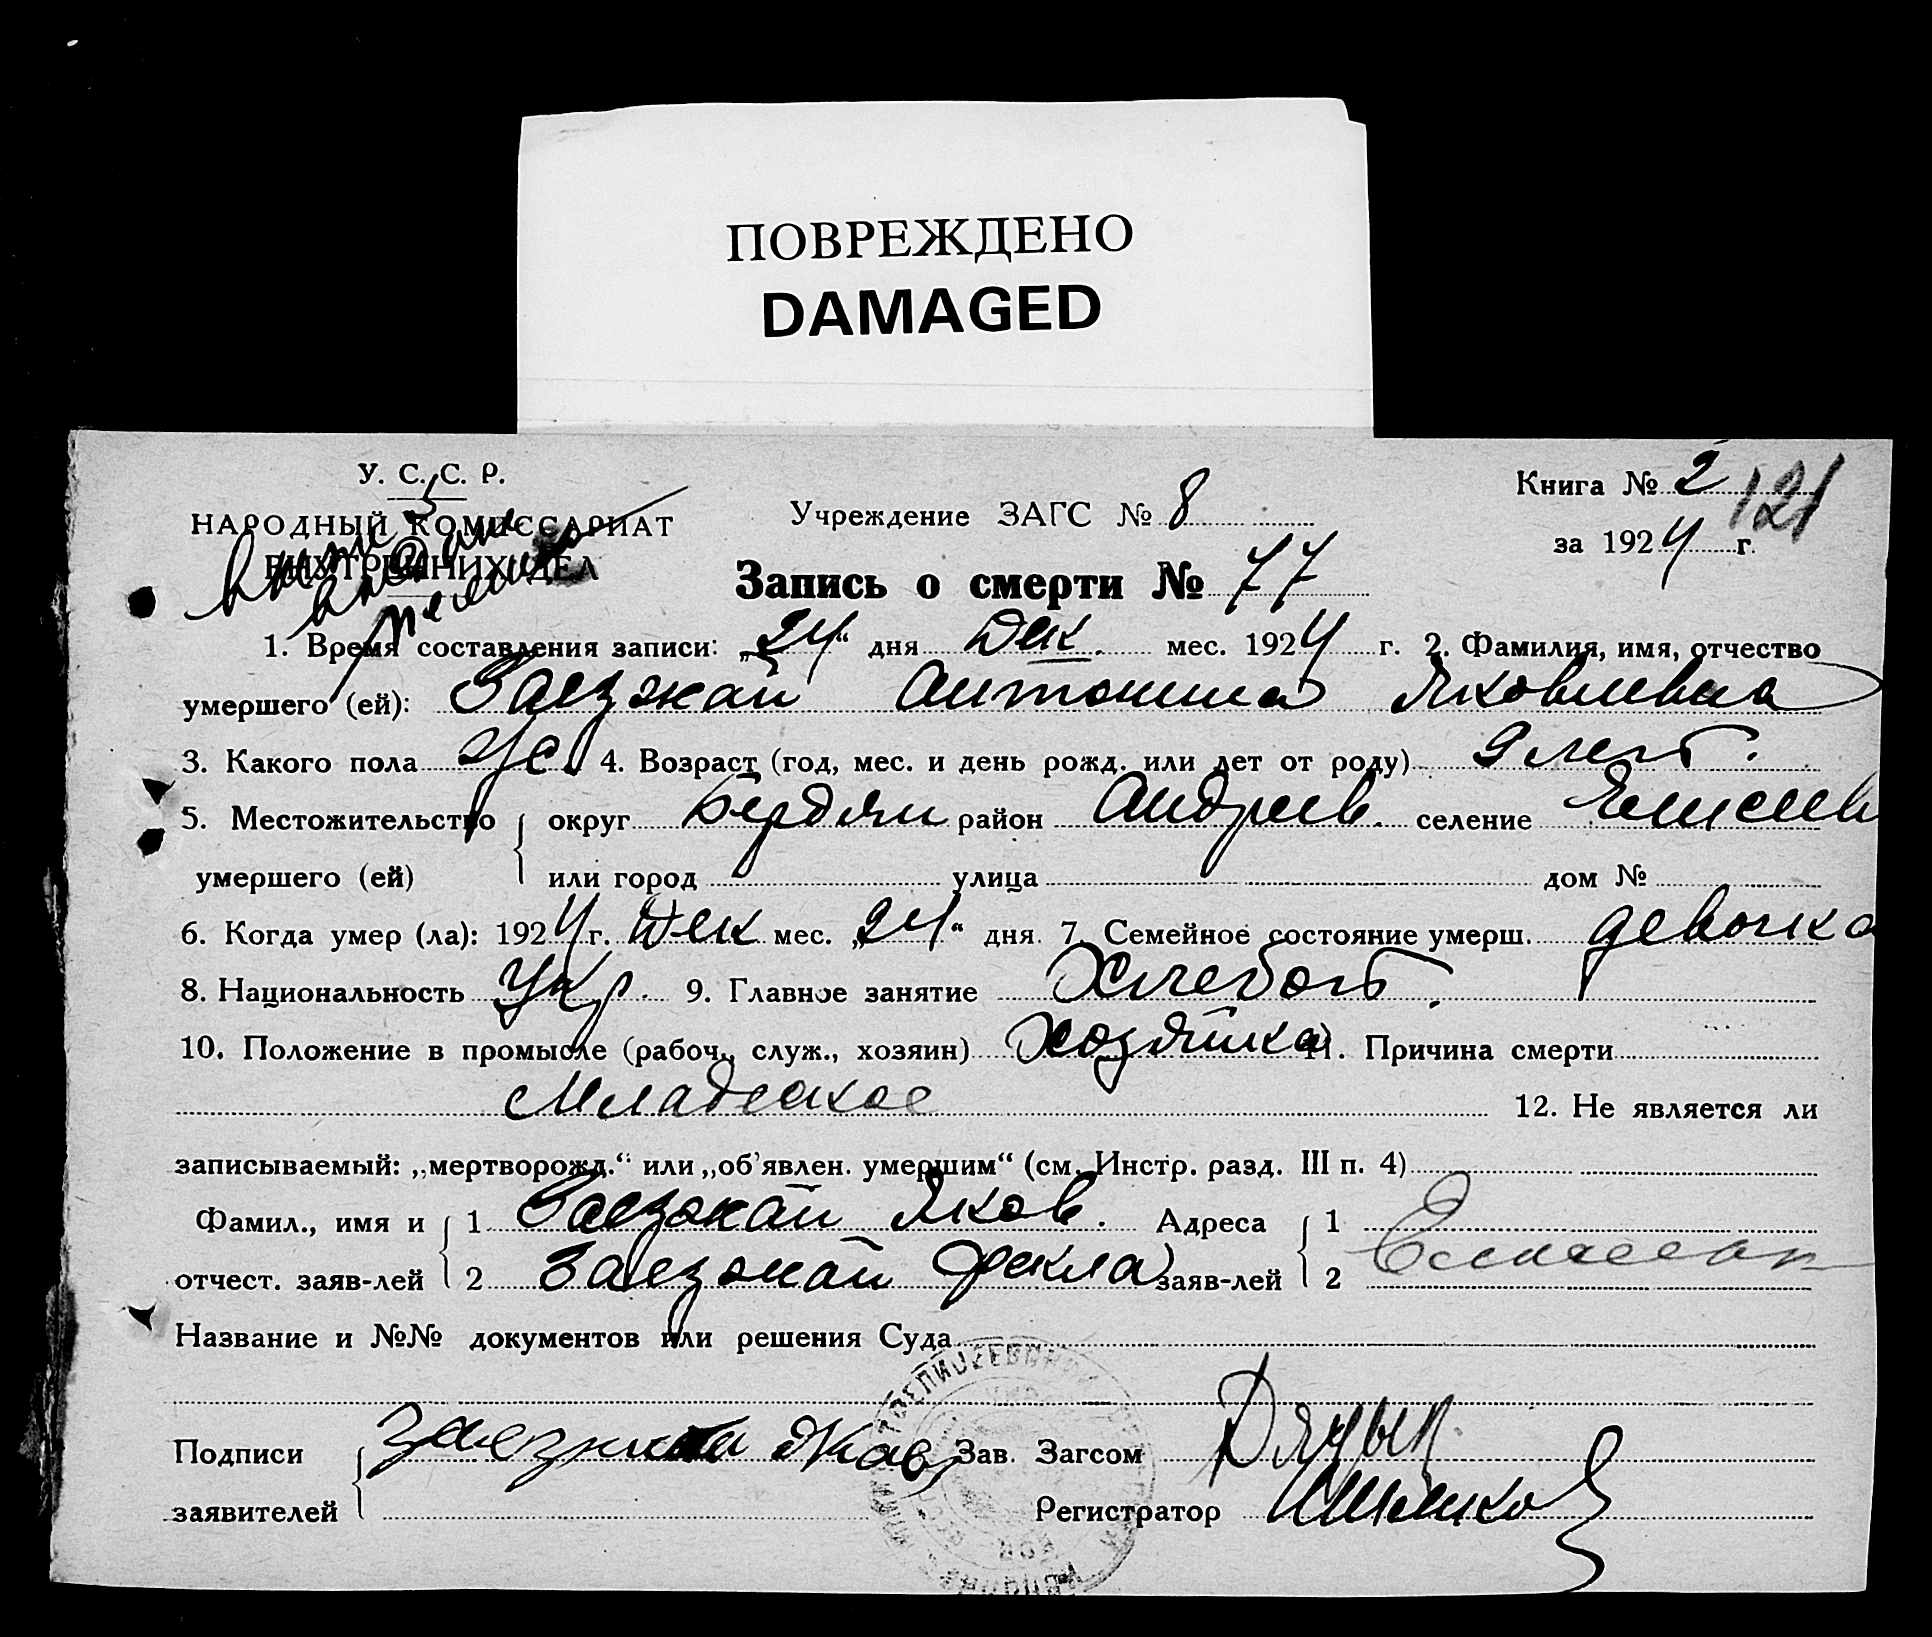 ПОВРЕЖДЕНО
DAMAGED
У. С. С. Р.
НАРОДНЫЙ КОМИССАРИАТ
ВНУТРЕННИХ ДЕЛ
Учреждение ЗАГС № 8
Книга № 2 121
за 1924 г.
Запись о смерти № 77
1. Время составления записи: „24“ дня Дек. мес. 1924 г. 2. Фамилия, имя, отчество
умершего (ей): Заезжай Антонина Яковлевна
3. Какого пола Ж. 4. Возраст (год, мес. и день рожд. или лет от роду) 9 лет.
5. Местожительство округ Бердян район Андреев. селение Елисеев
умершего (ей) или город улица дом №
6. Когда умер (ла): 1924 г. Дек мес. „24“ дня. 7. Семейное состояние умерш. девочка
8. Национальность Укр. 9. Главное занятие Хлебоп.
10. Положение в промысле (рабоч., служ., хозяин) Хозяйка 11. Причина смерти
Младенское 12. Не является ли
записываемый: „мертворожд.“ или „об’явлен. умершим“ (см. Инстр. разд. III п. 4)
Фамил., имя и 1 Заезжай Яков. Адреса 1
отчест. заяв-лей 2 Заезжай Фекла заяв-лей 2
Название и №№ документов или решения Суда
Подписи Зав. Загсом
заявителей Регистратор